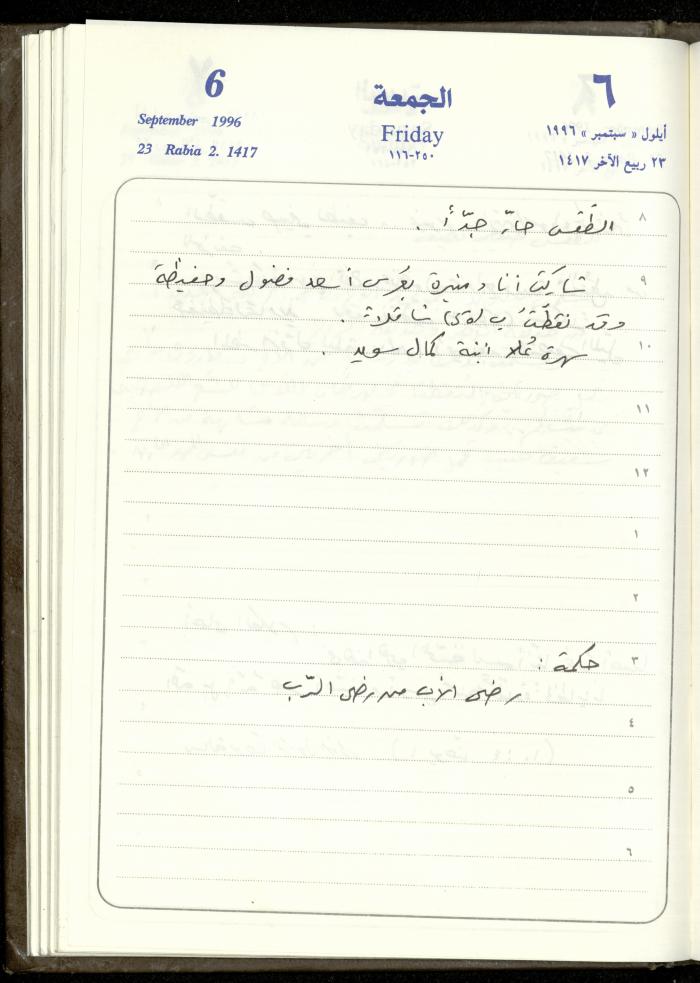 6
September 1996
23 Rabia 2. 1417
الجمعة
Friday
٢٥٠-١١٦
٦
أيلول « سبتمبر » ١٩٩٦
٢٣ ربيع الآخر ١٤١٧
٨
الطَقس حارّ جدّاً .
٩
شاركت أنا ومنيرة بعُرس أسعد فضول وحفيظة
وقد نقطّتُ ب شاقلاً .
١٠
سهرة عُلا ابنة كمال سويد .
١١
١٢
١
٢
٣
حكمة :
رضى الأب من رضى الرّب
٤
٥
٦